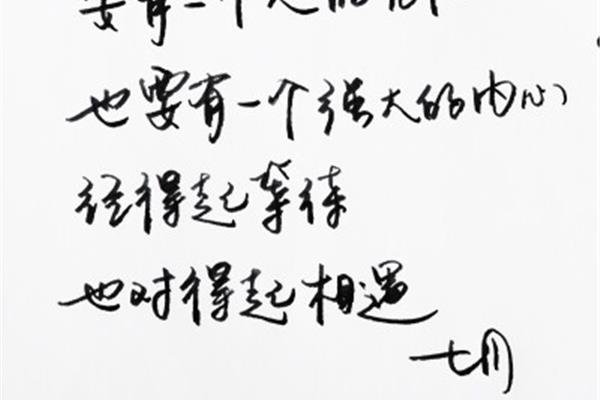 要有一个
也要有一个强大的内心
经得起等待
也对得起相遇
七月